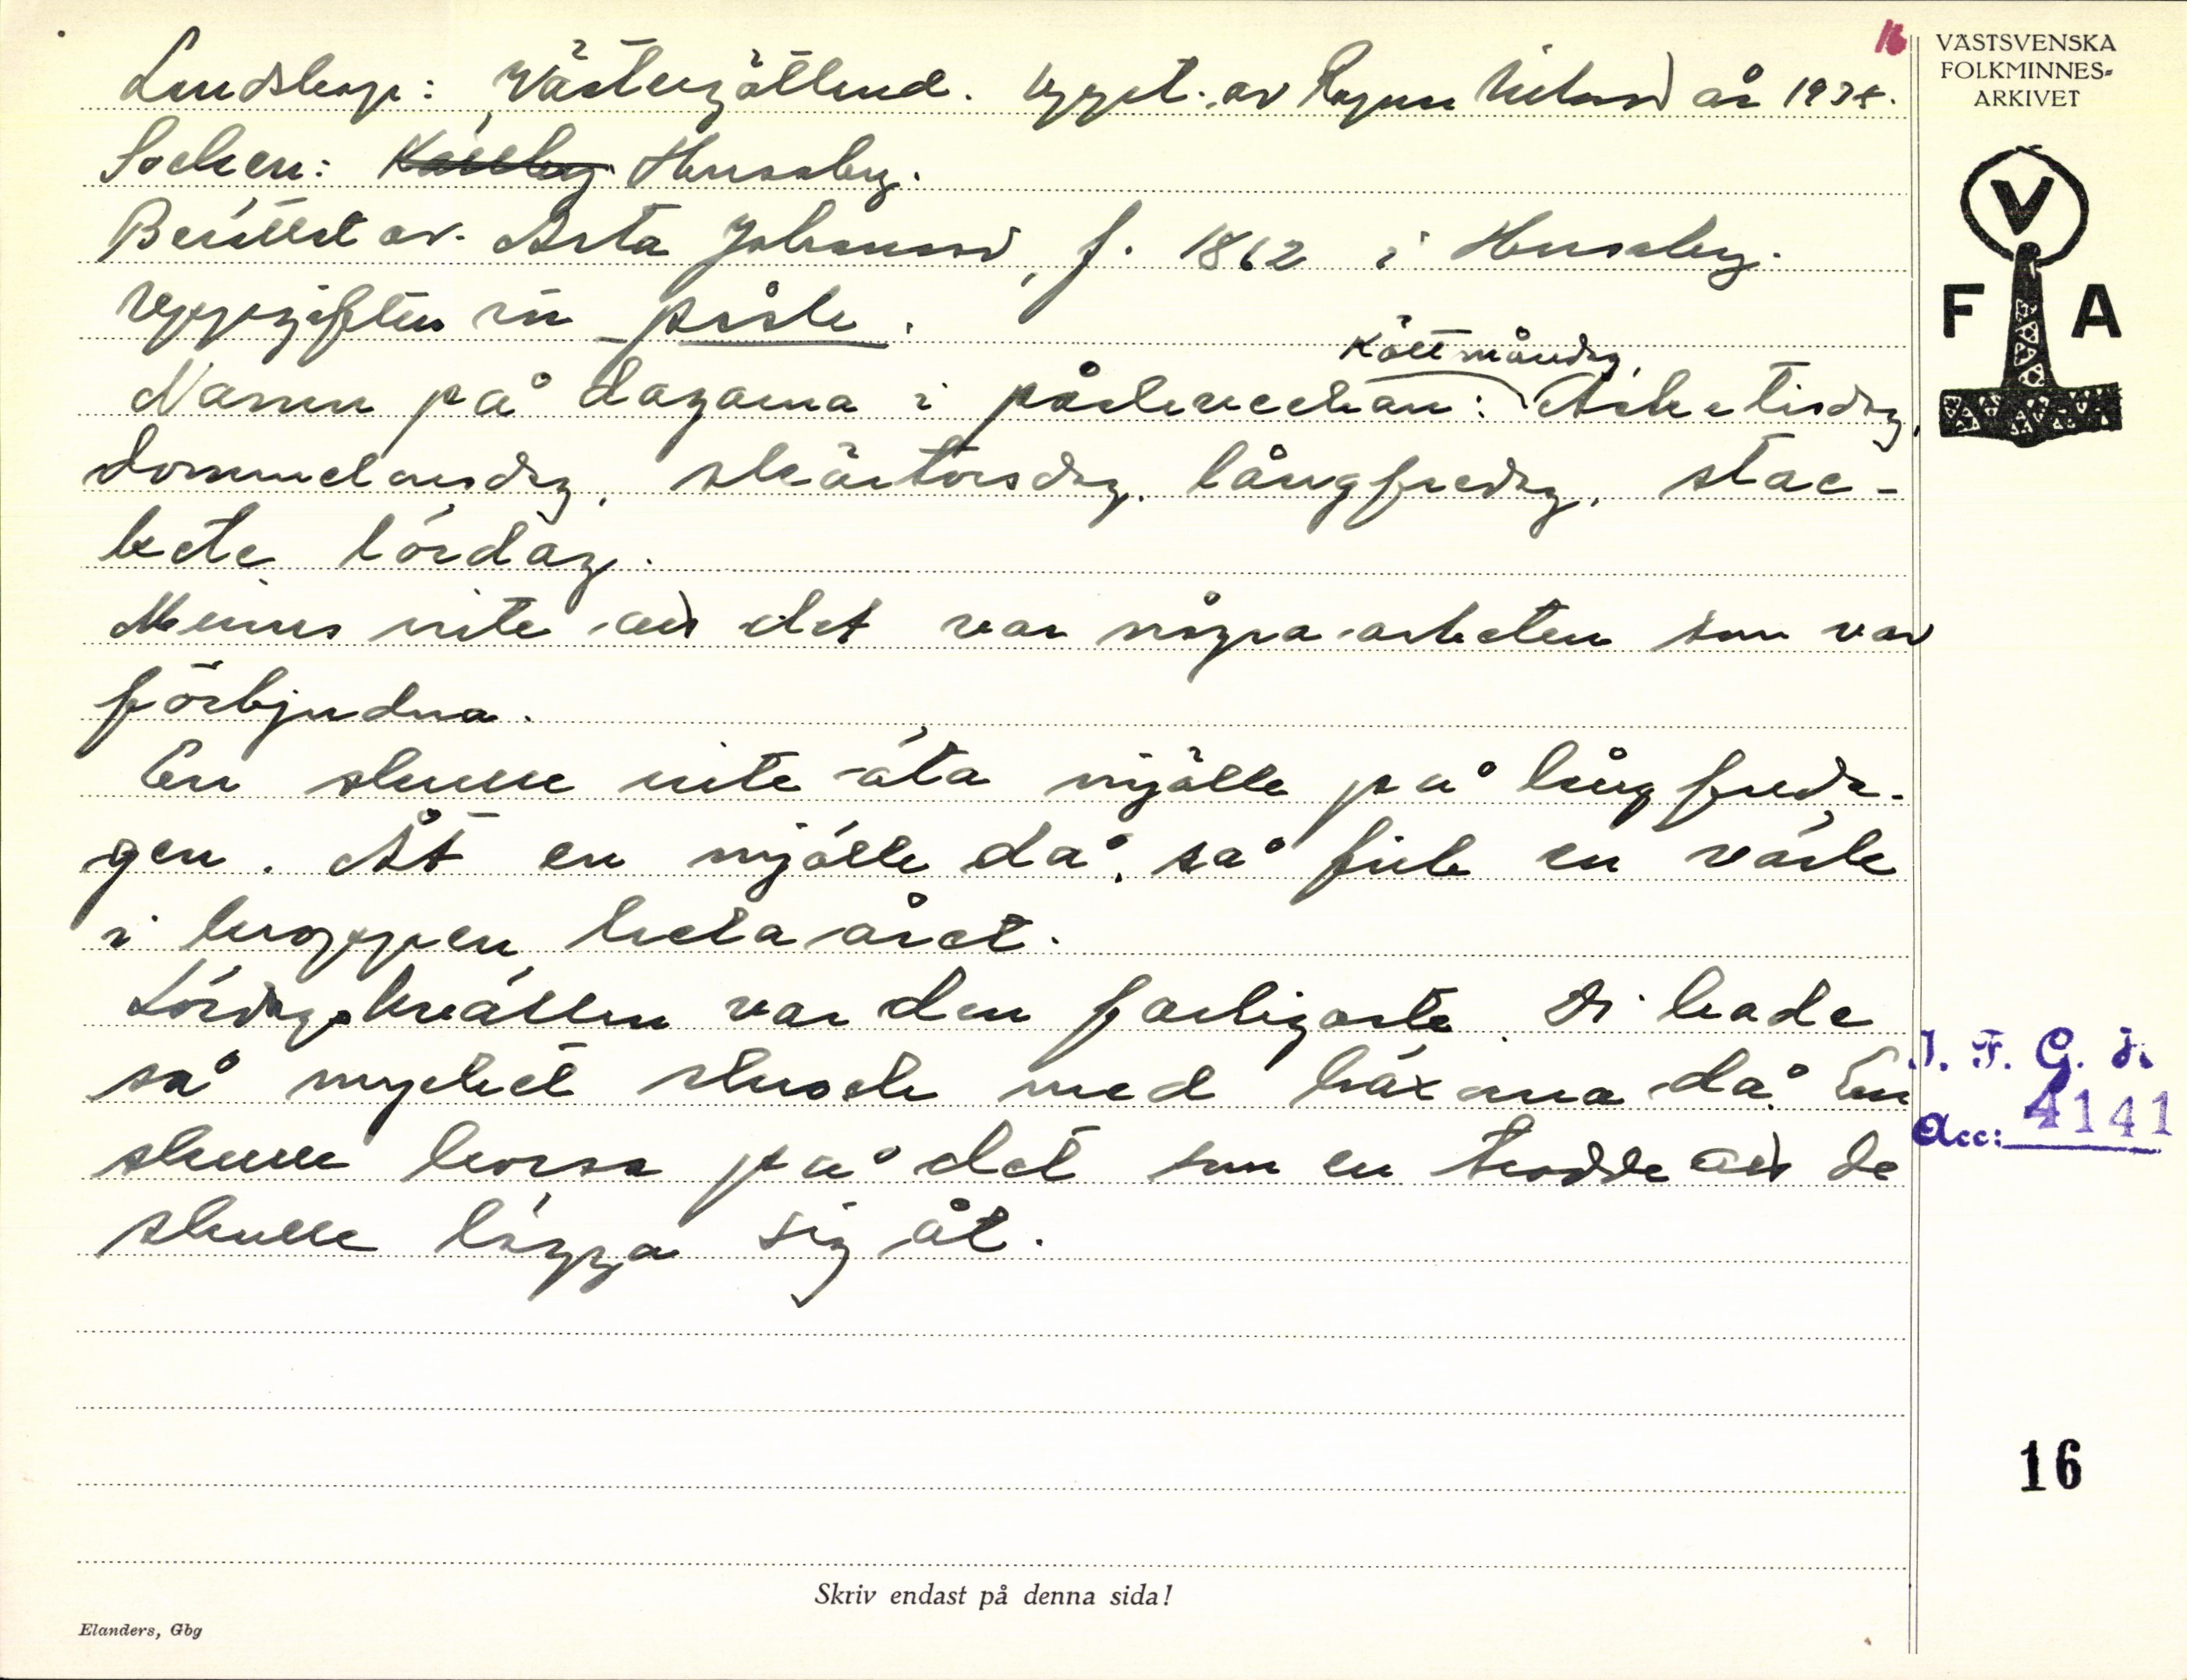 16
VÄSTSVENSKA
FOLKMINNES-
ARKIVET
V
F A
Landskap: Västergötland. Uppt. av Ragnar Nilsson år 1935.
Socken: Källby Husaby.
Berättat av Asta Johansson, f. 1862 i Husaby.
Uppgiften rör påsk.
Köttmåndag,
Namn på dagarna i påskveckan: Asketisdag,
dommelonsdag, skärtorsdag, långfredag, stac-
kete lördag.
Minns inte att det var några arbeten som var
förbjudna.
En skulle inte äta mjölk på långfreda-
gen. Åt en mjölk då, så fick en värk
i kroppen hela året.
Lördagskvällen var den farligaste. Di hade
så mycket skrock med häxorna då. En
skulle korsa på det som en trodde att de
skulle lägga sig åt.
I. F. G. H.
Acc: 4141
16
Skriv endast på denna sida!
Elanders, Gbg